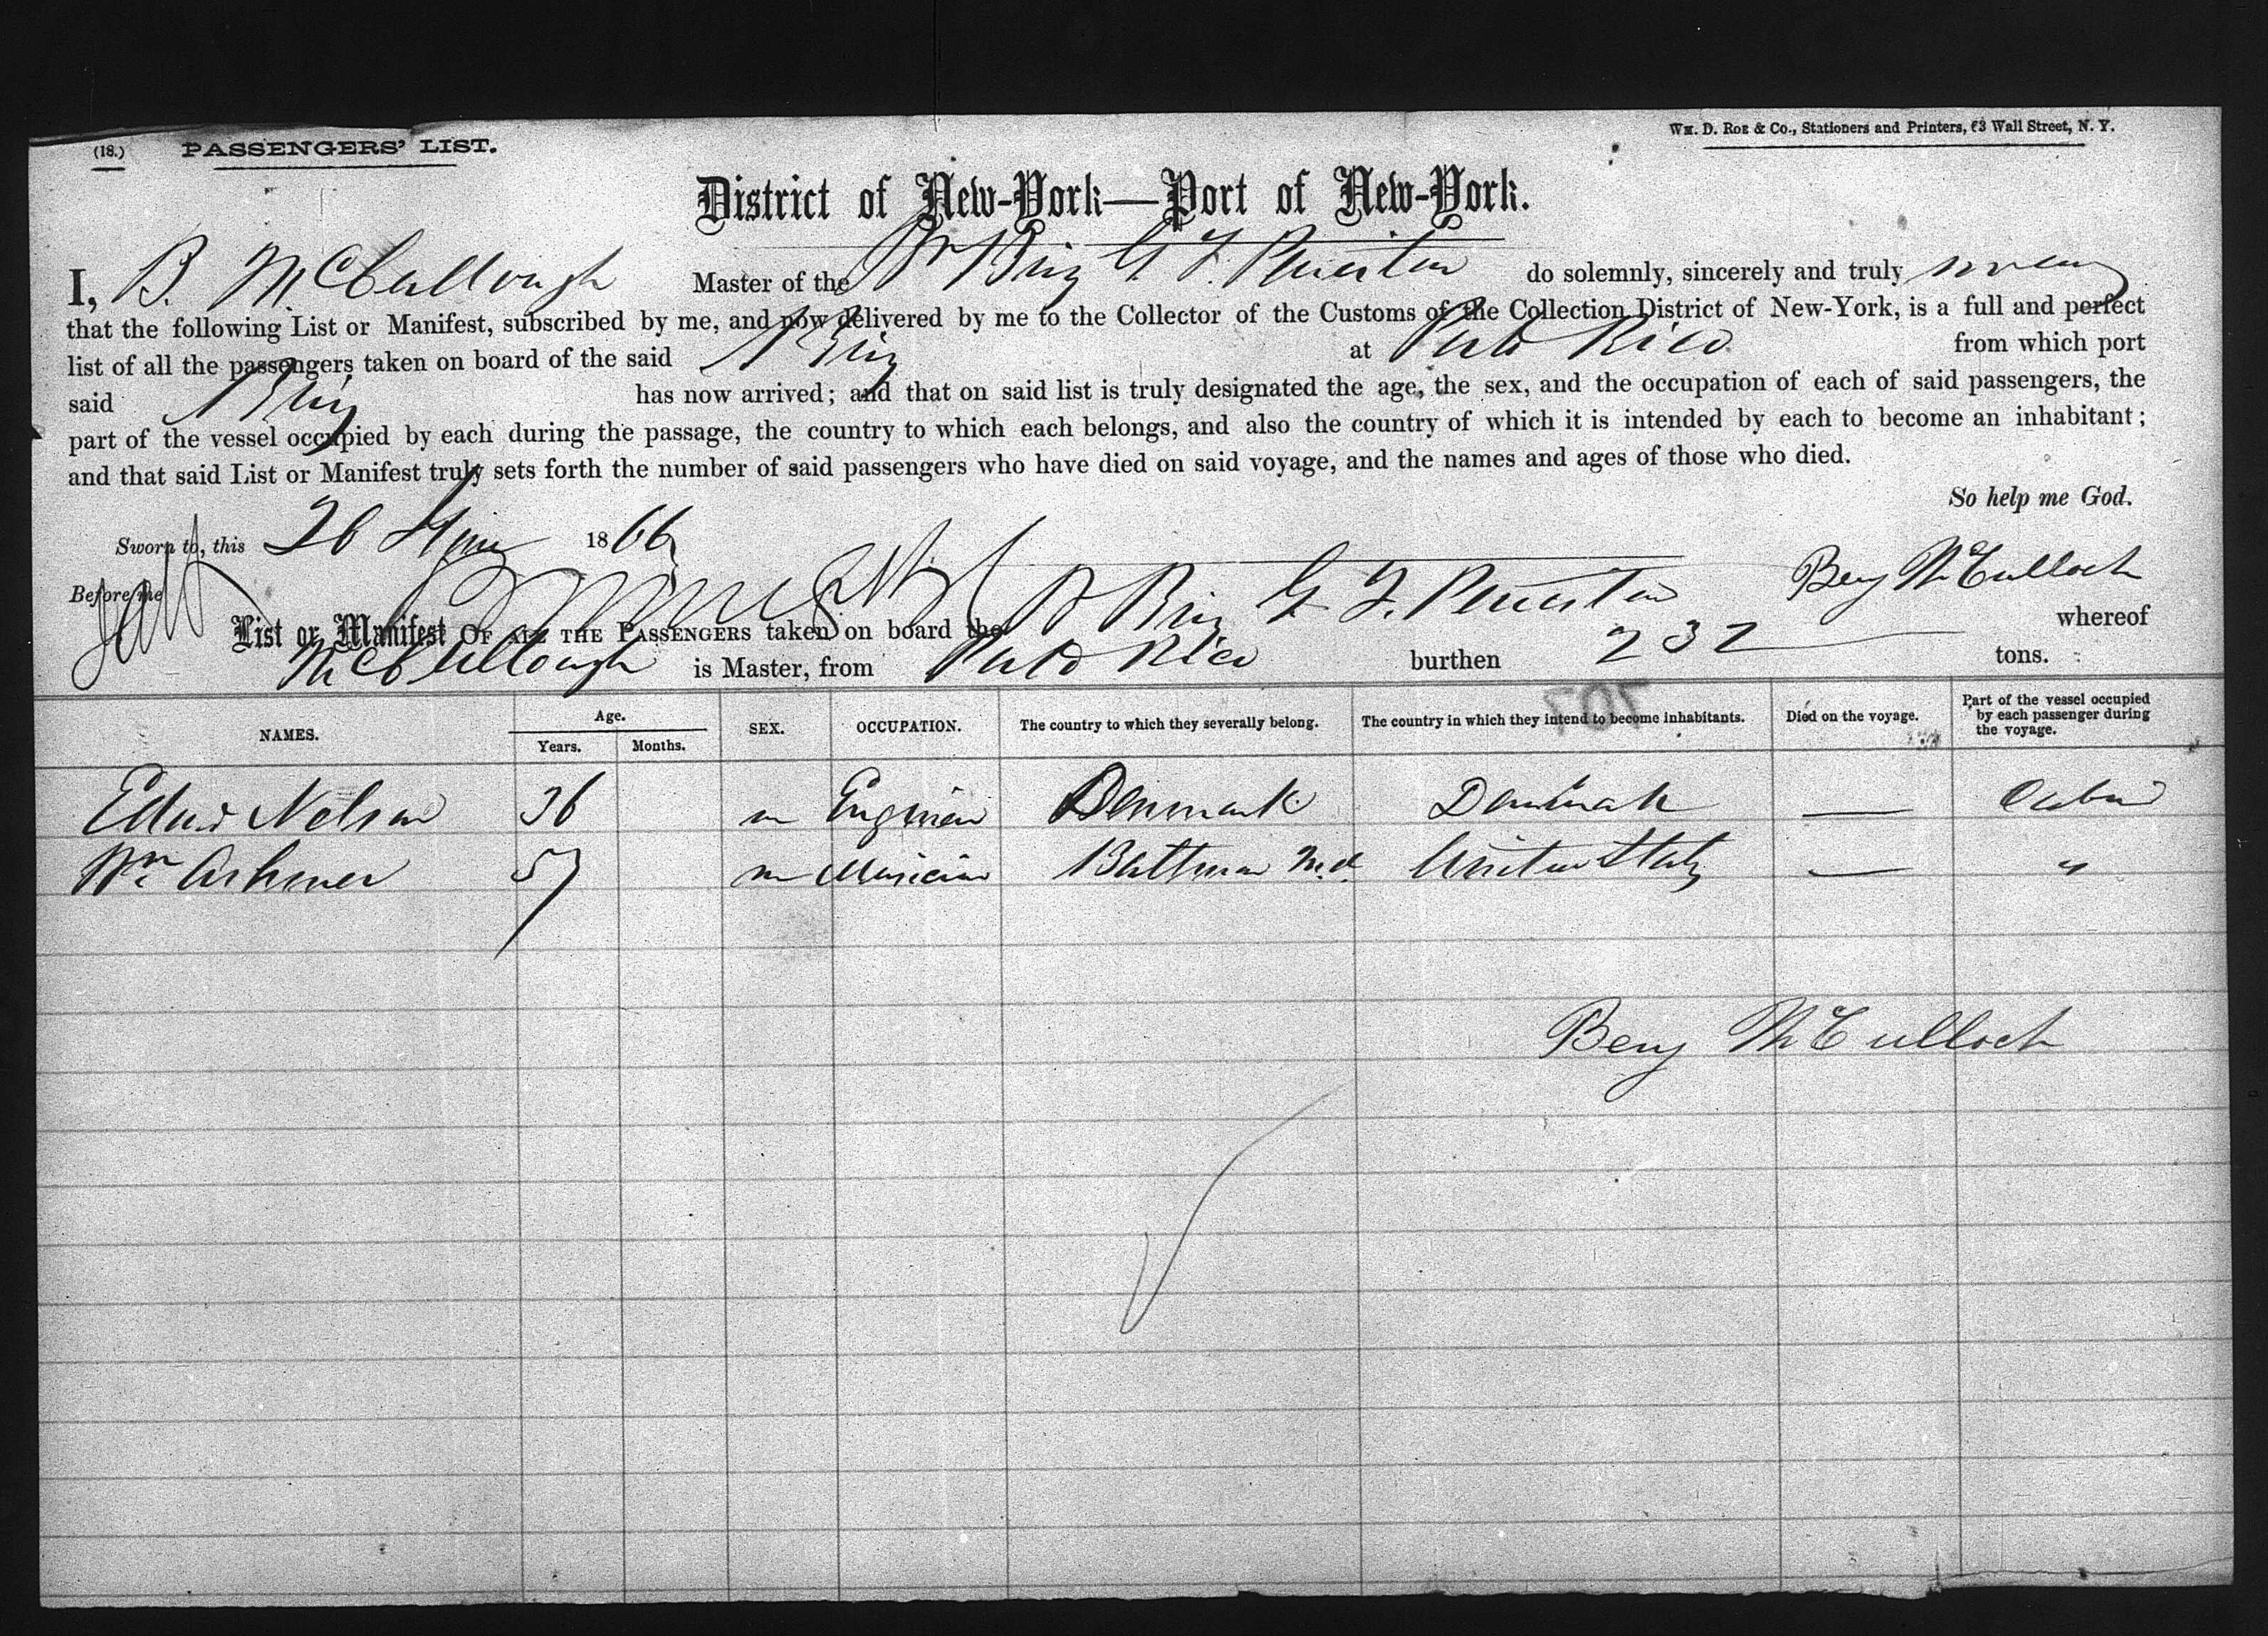 (18.) PASSENGERS' LIST.
Wm. D. Roe & Co., Stationers and Printers, 63 Wall Street, N. Y.
District of New-York—Port of New-York.
I, B. McCullough Master of the Br Brig G F. do solemnly, sincerely and truly swear
that the following List or Manifest, subscribed by me, and now delivered by me to the Collector of the Customs of the Collection District of New-York, is a full and perfect
list of all the passengers taken on board of the said Brig at Porto Rico from which port
said Brig has now arrived; and that on said list is truly designated the age, the sex, and the occupation of each of said passengers, the
part of the vessel occupied by each during the passage, the country to which each belongs, and also the country of which it is intended by each to become an inhabitant;
and that said List or Manifest truly sets forth the number of said passengers who have died on said voyage, and the names and ages of those who died.
So help me God.
Sworn to, this 26 1866
Before me
Benj McCulloch
List or Manifest OF ALL THE PASSENGERS taken on board the B Brig G F. whereof
McCullough is Master, from Porto Rico burthen 232 tons.
707
NAMES. Age. Years. Months. SEX. OCCUPATION. The country to which they severally belong. The country in which they intend to become inhabitants. Died on the voyage. Part of the vessel occupied by each passenger during the voyage.
Nelson 36 m Engineer Denmark Denmark — Cabin
Wm 57 m Musician Baltimore Md. United States — "
Benj McCulloch